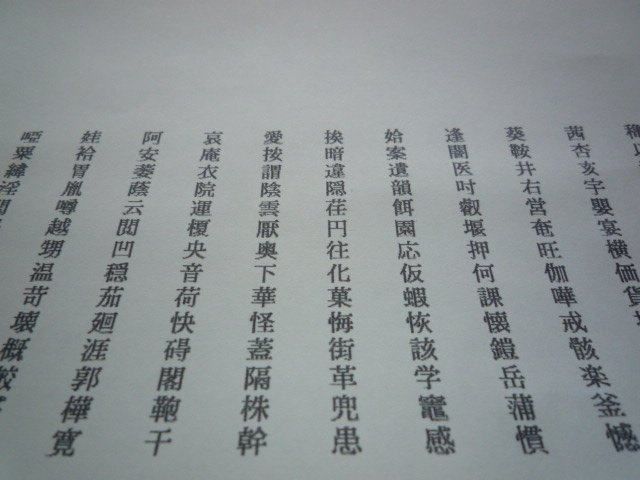 唖娃阿哀愛挨姶逢葵茜穐
粟袷安庵按暗案闇鞍杏以
緯胃萎衣謂違遺医井亥
淫胤蔭院陰隠韻吋右宇
噂云運雲荏餌叡営嬰
越閲榎厭円園堰奄宴
甥凹央奥往応押旺横
温穏音下化仮何伽価
苛茄荷華菓蝦課嘩貨
壊廻快怪悔恢懐戒
概涯碍蓋街該鎧骸
較郭閣隔革学岳楽
樺鞄株兜竃蒲釜
寛干幹患感慣憾